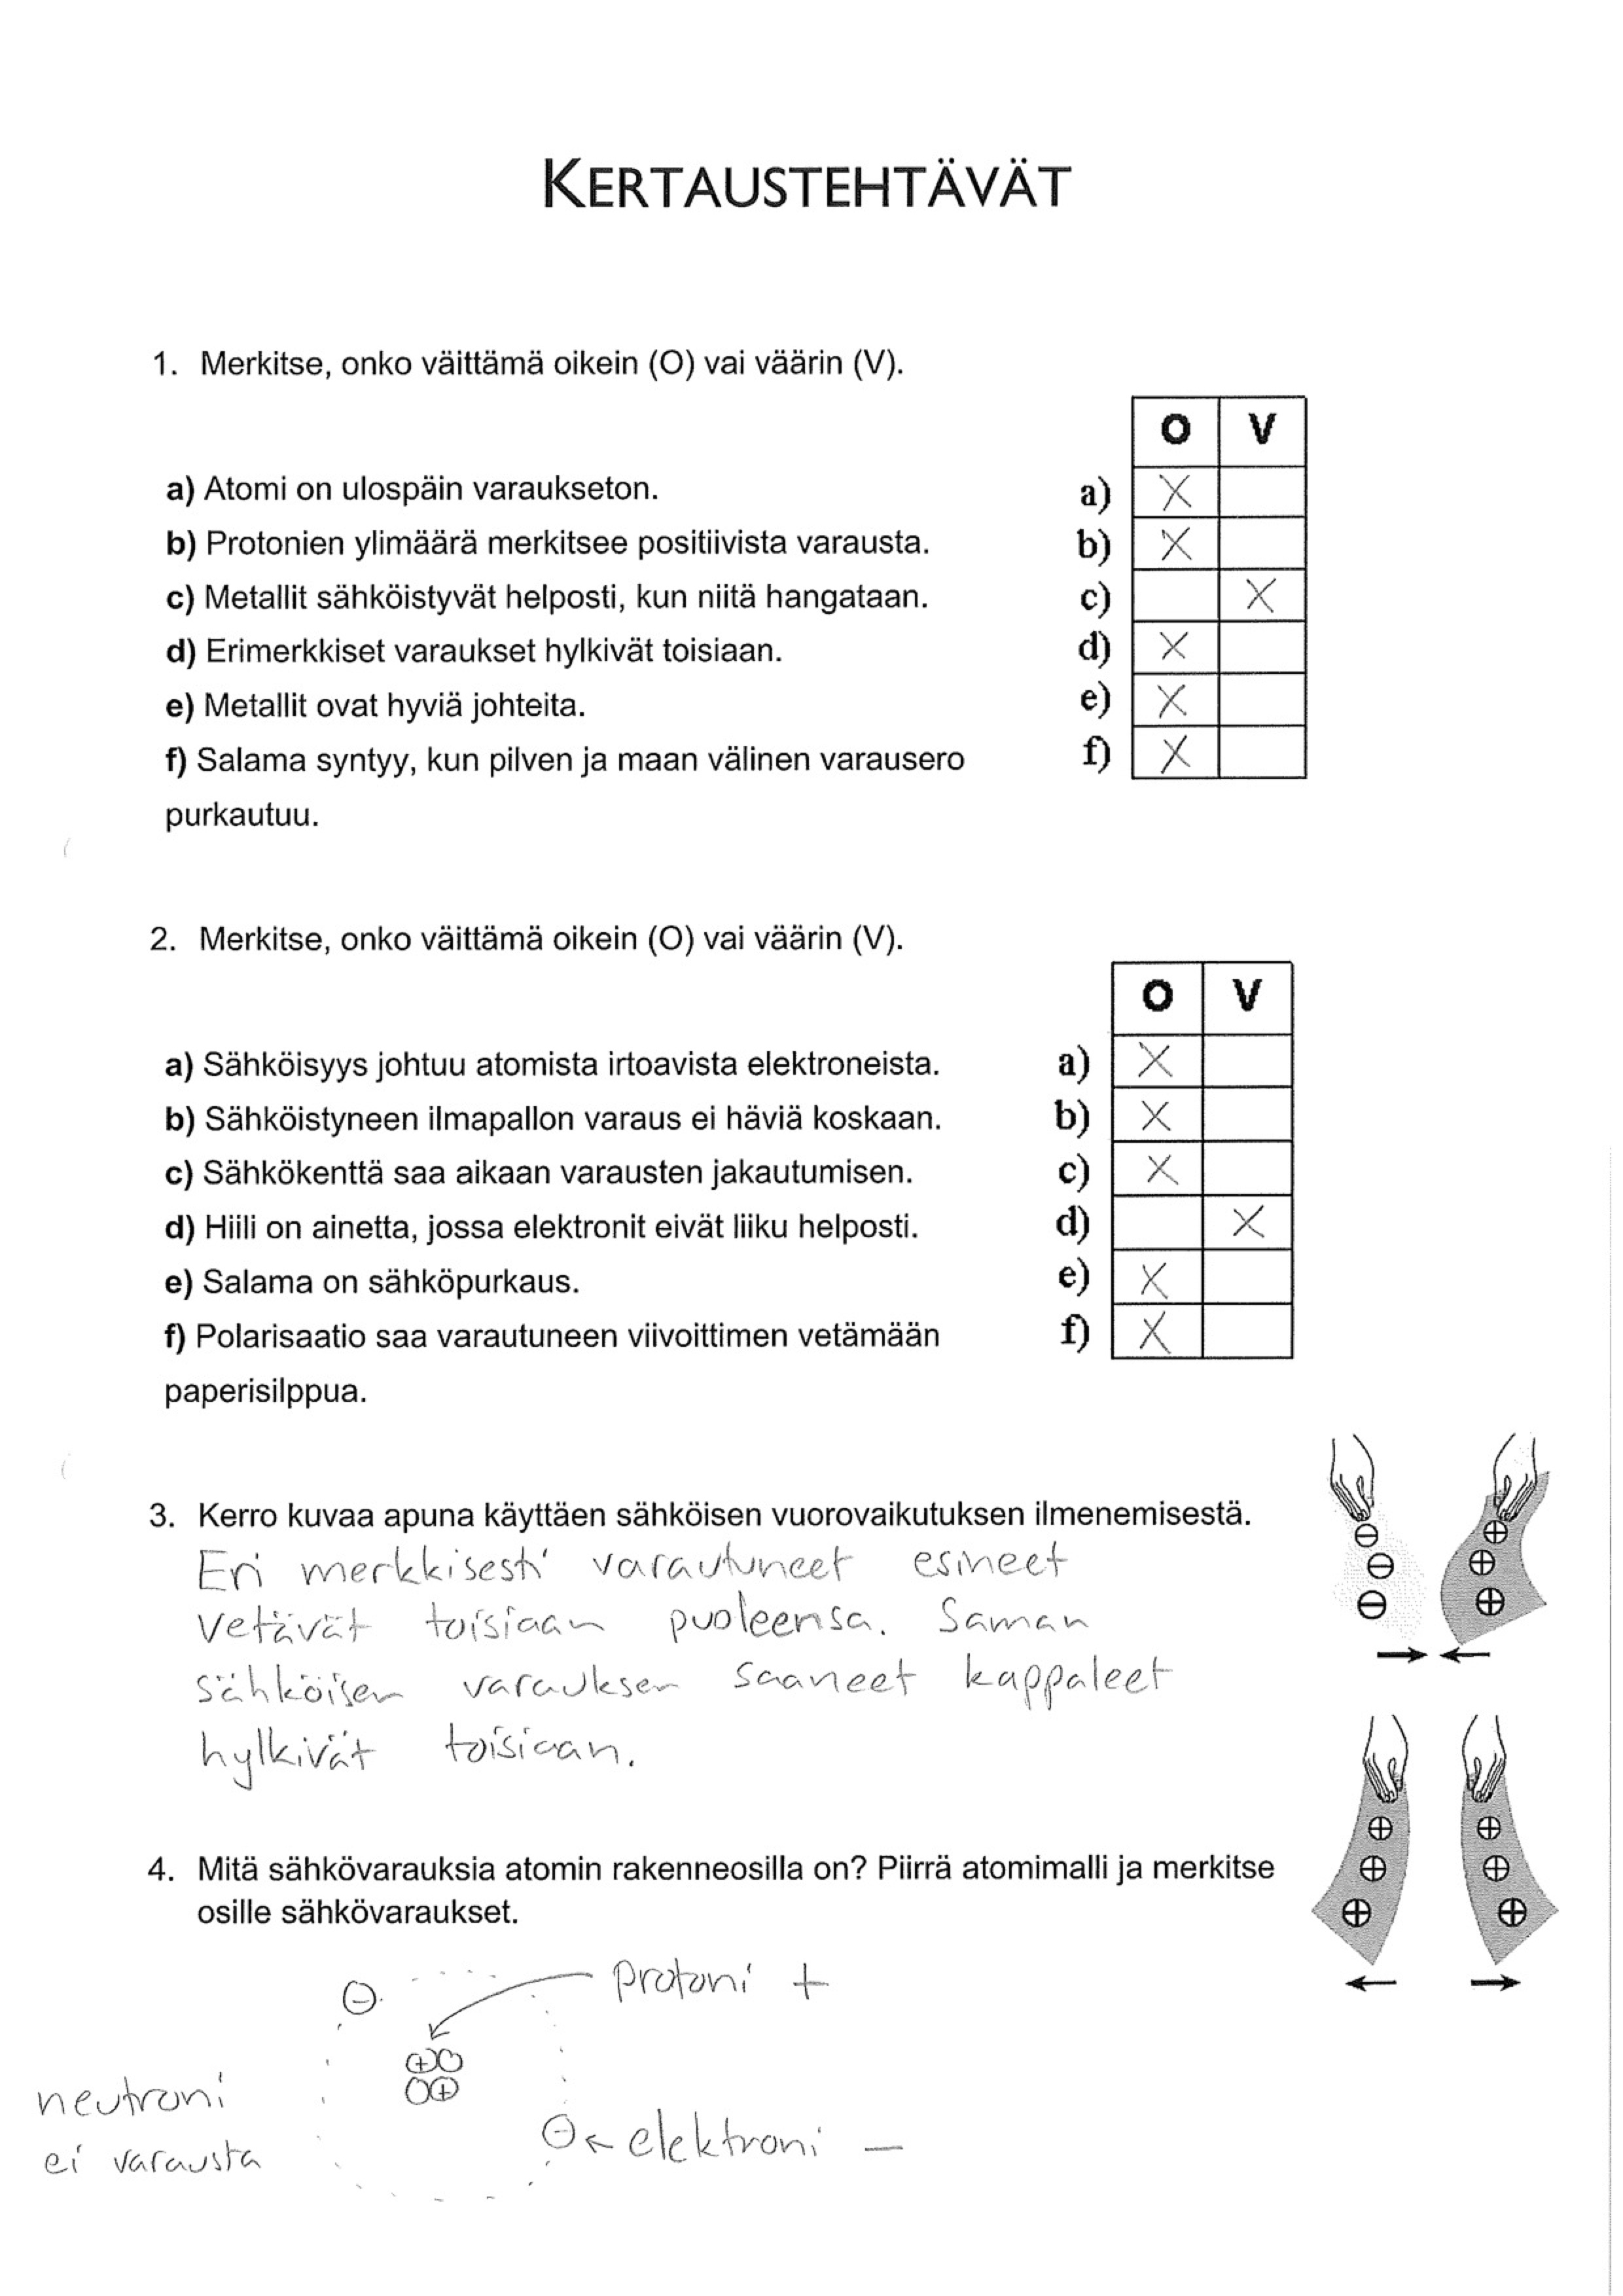 KERTAUSTEHTÄVÄT
1. Merkitse, onko väittämä oikein (O) vai väärin (V).
O V
a) Atomi on ulospäin varaukseton. a) X
b) Protonien ylimäärä merkitsee positiivista varausta. b) X
c) Metallit sähköistyvät helposti, kun niitä hangataan. c) X
d) Erimerkkiset varaukset hylkivät toisiaan. d) X
e) Metallit ovat hyviä johteita. e) X
f) Salama syntyy, kun pilven ja maan välinen varausero f) X
purkautuu.
2. Merkitse, onko väittämä oikein (O) vai väärin (V).
O V
a) Sähköisyys johtuu atomista irtoavista elektroneista. a) X
b) Sähköistyneen ilmapallon varaus ei häviä koskaan. b) X
c) Sähkökenttä saa aikaan varausten jakautumisen. c) X
d) Hiili on ainetta, jossa elektronit eivät liiku helposti. d) X
e) Salama on sähköpurkaus. e) X
f) Polarisaatio saa varautuneen viivoittimen vetämään f) X
paperisilppua.
3. Kerro kuvaa apuna käyttäen sähköisen vuorovaikutuksen ilmenemisestä.
Eri merkkisesti varautuneet esineet
vetävät toisiaan puoleensa. Saman
sähköisen varauksen saaneet kappaleet
hylkivät toisiaan.
4. Mitä sähkövarauksia atomin rakenneosilla on? Piirrä atomimalli ja merkitse
osille sähkövaraukset.
protoni +
neutroni
ei varausta
elektroni −